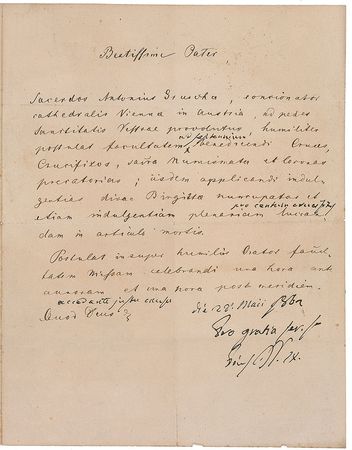 Beatissime Pater,
Sacerdos Antonius Gruscha, concionator
cathedralis Vienna in Austria, ad pedes
Sanctitatis Vestrae provolutus humillime
ad septennium
postulat facultatem benedicendi Cruces,
Crucifixos, sacra Numismata et Coronas
precatorias; iisdem applicandi indul-
gentias divae Birgittae nuncupatas et
etiam indulgentiam plenariam lucran-
dam in articulo mortis.
Postulat insuper humilis Orator facul-
tatem Missam celebrandi una hora ante
auroram et una hora post meridiem.
accedente justa causa
Quod Deus
die 28. Maii
Pro gratia
Pius P. P. IX.